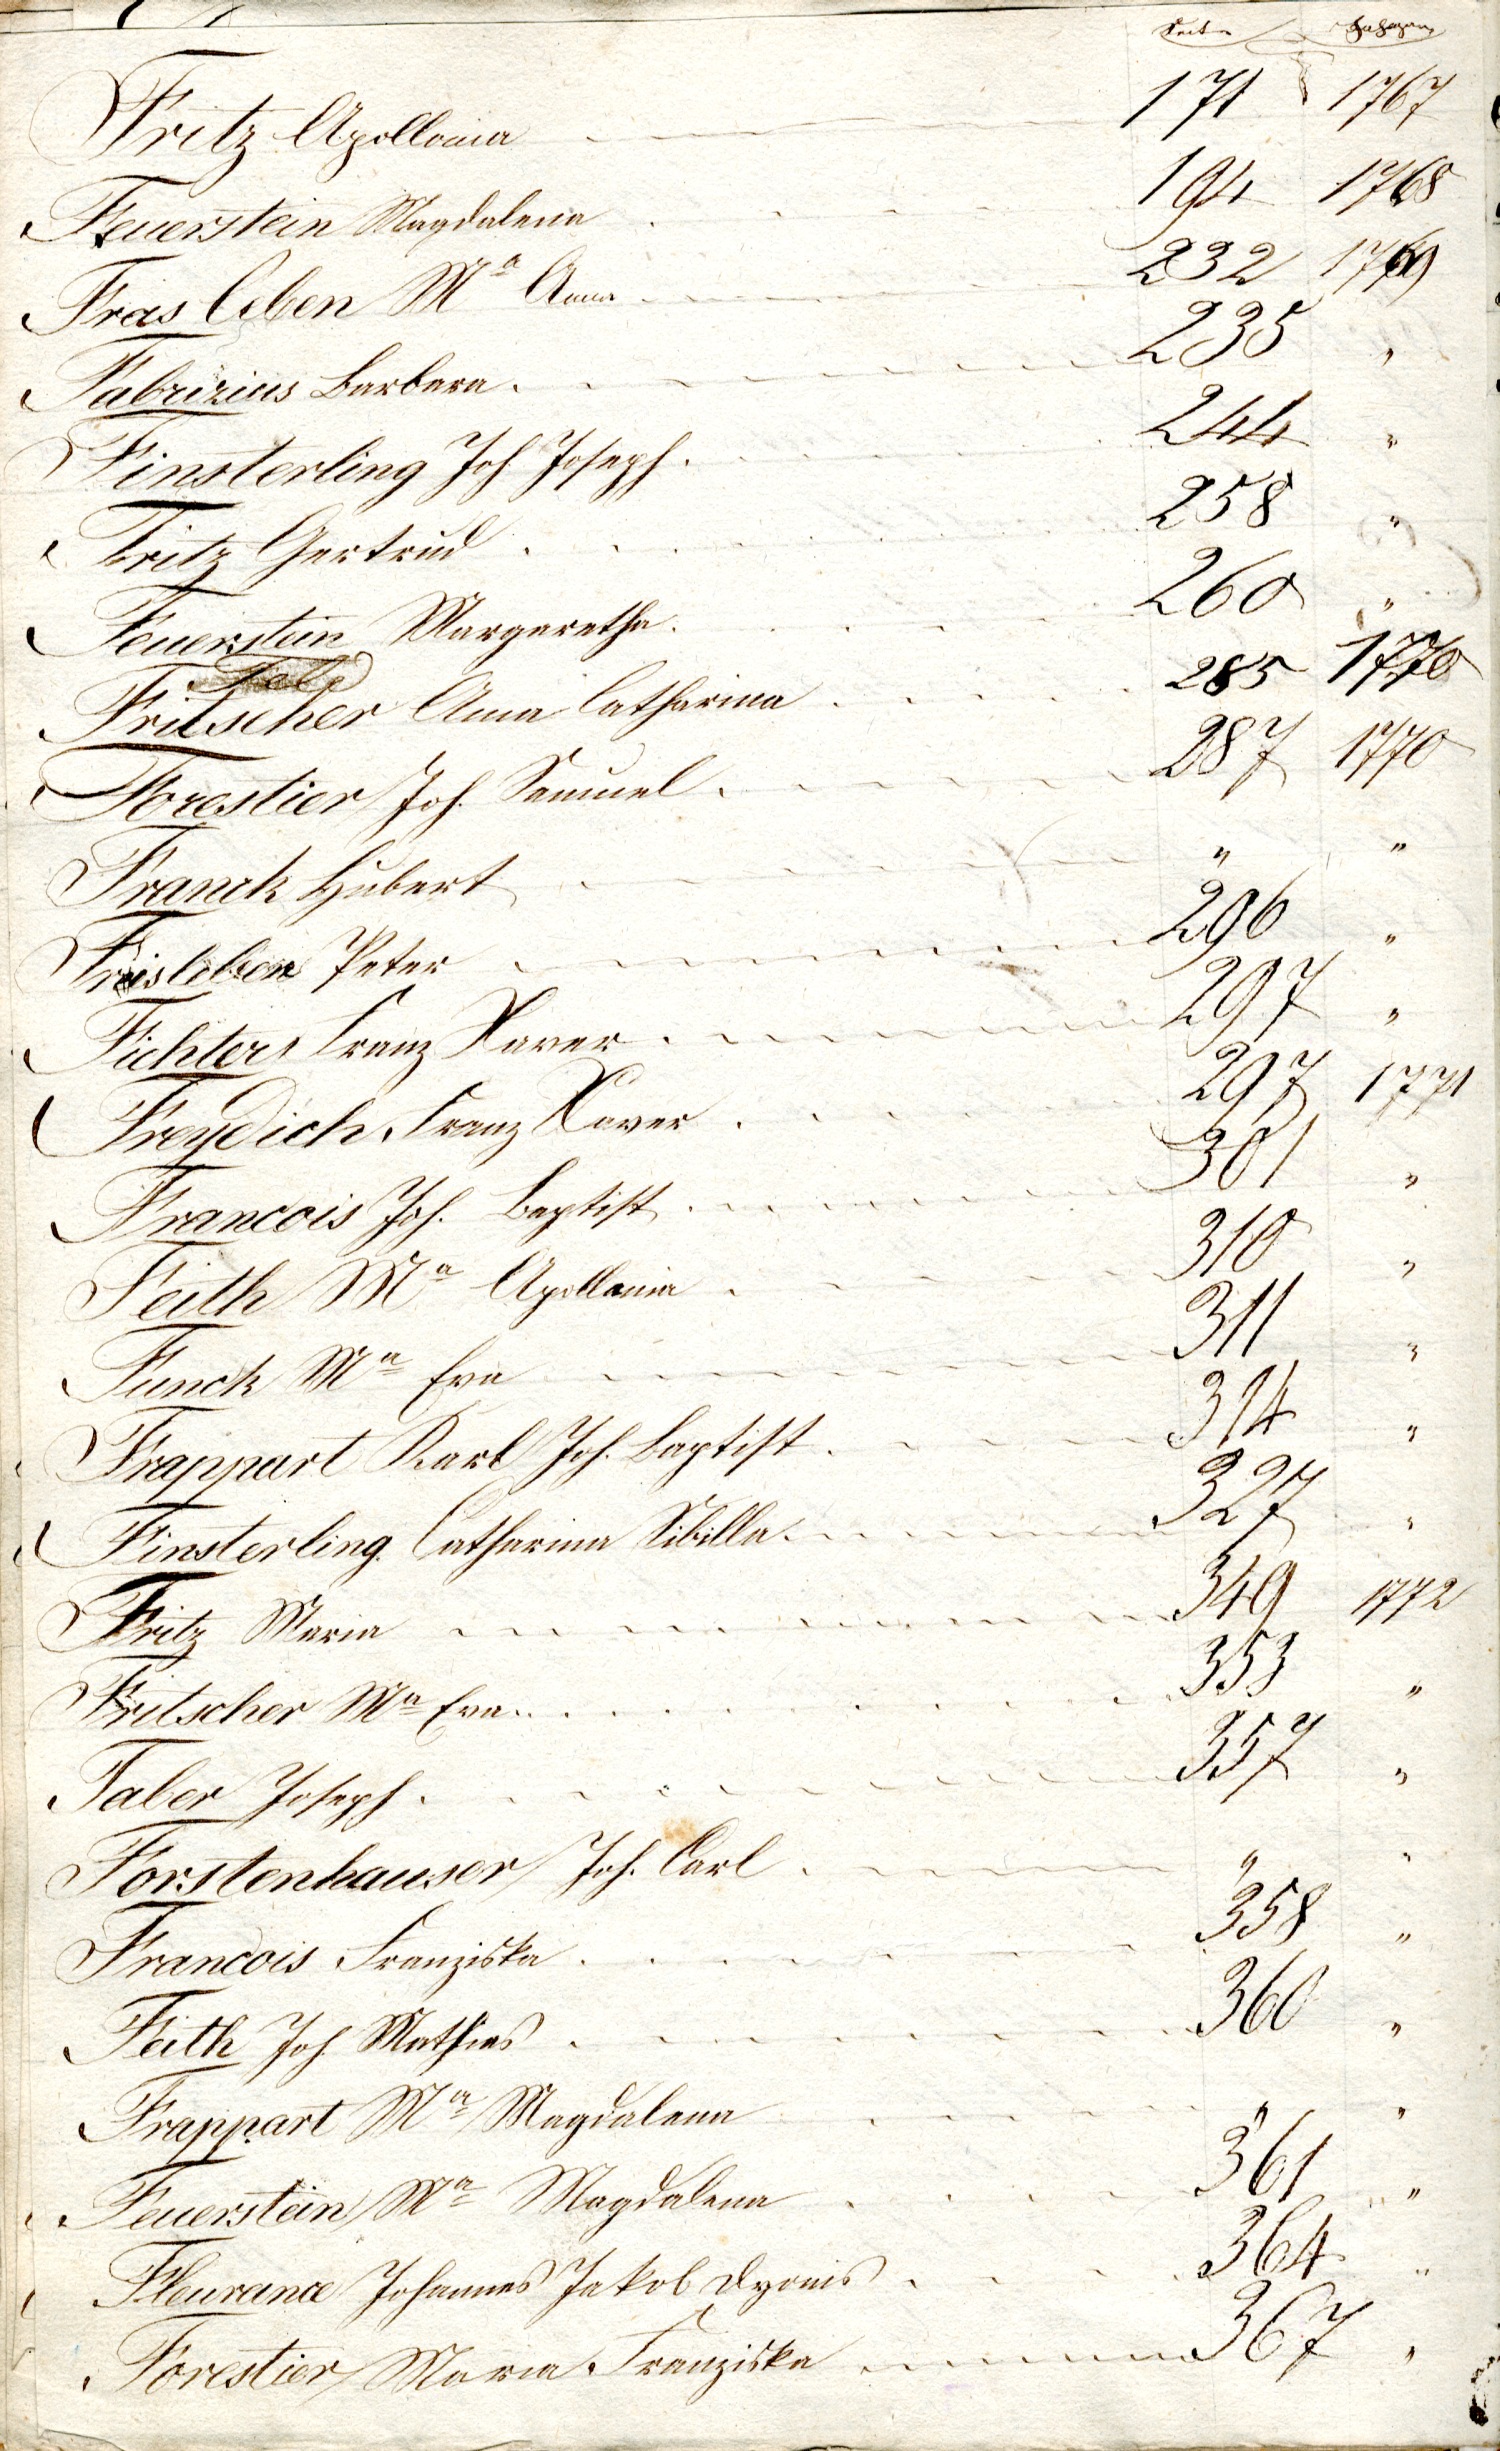 Seite Jahrgang
Fritz Apollonia 171 1767
Feuerstein Magdalena 194 1768
Frasleben Mª Anna 232 1769
Fabrizius Barbara 235 "
Finsterling Joh Joseph 244 "
Fritz Gertrud 258 "
Feuerstein Margaretha 260 "
Fritscher Anna Catharina 285 1770
Forestier Joh. Samuel 287 1770
Franck Hubert " "
Frisleben Peter 296 "
Fichter Franz Xaver 297 "
Freydich Franz Xaver 297 1771
Francois Joh. Baptist 301 "
Feith Mª Apollonia 310 "
Funck Mª Eva 311 "
Frappart Karl Joh. Baptist 314 "
Finsterling Catharina Sibilla 327 "
Fritz Maria 349 1772
Fritscher Mª Eva 353 "
Faber Joseph 357 "
Forstenhauser Joh. Carl " "
Francois Franziska 358 "
Feith Joh Mathias 360 "
Frappart Mª Magdalena " "
Feuerstein Mª Magdalena 361 "
Fleurance Johannes Jakob Dyonis 364 "
Forestier Maria Franziska 367 "